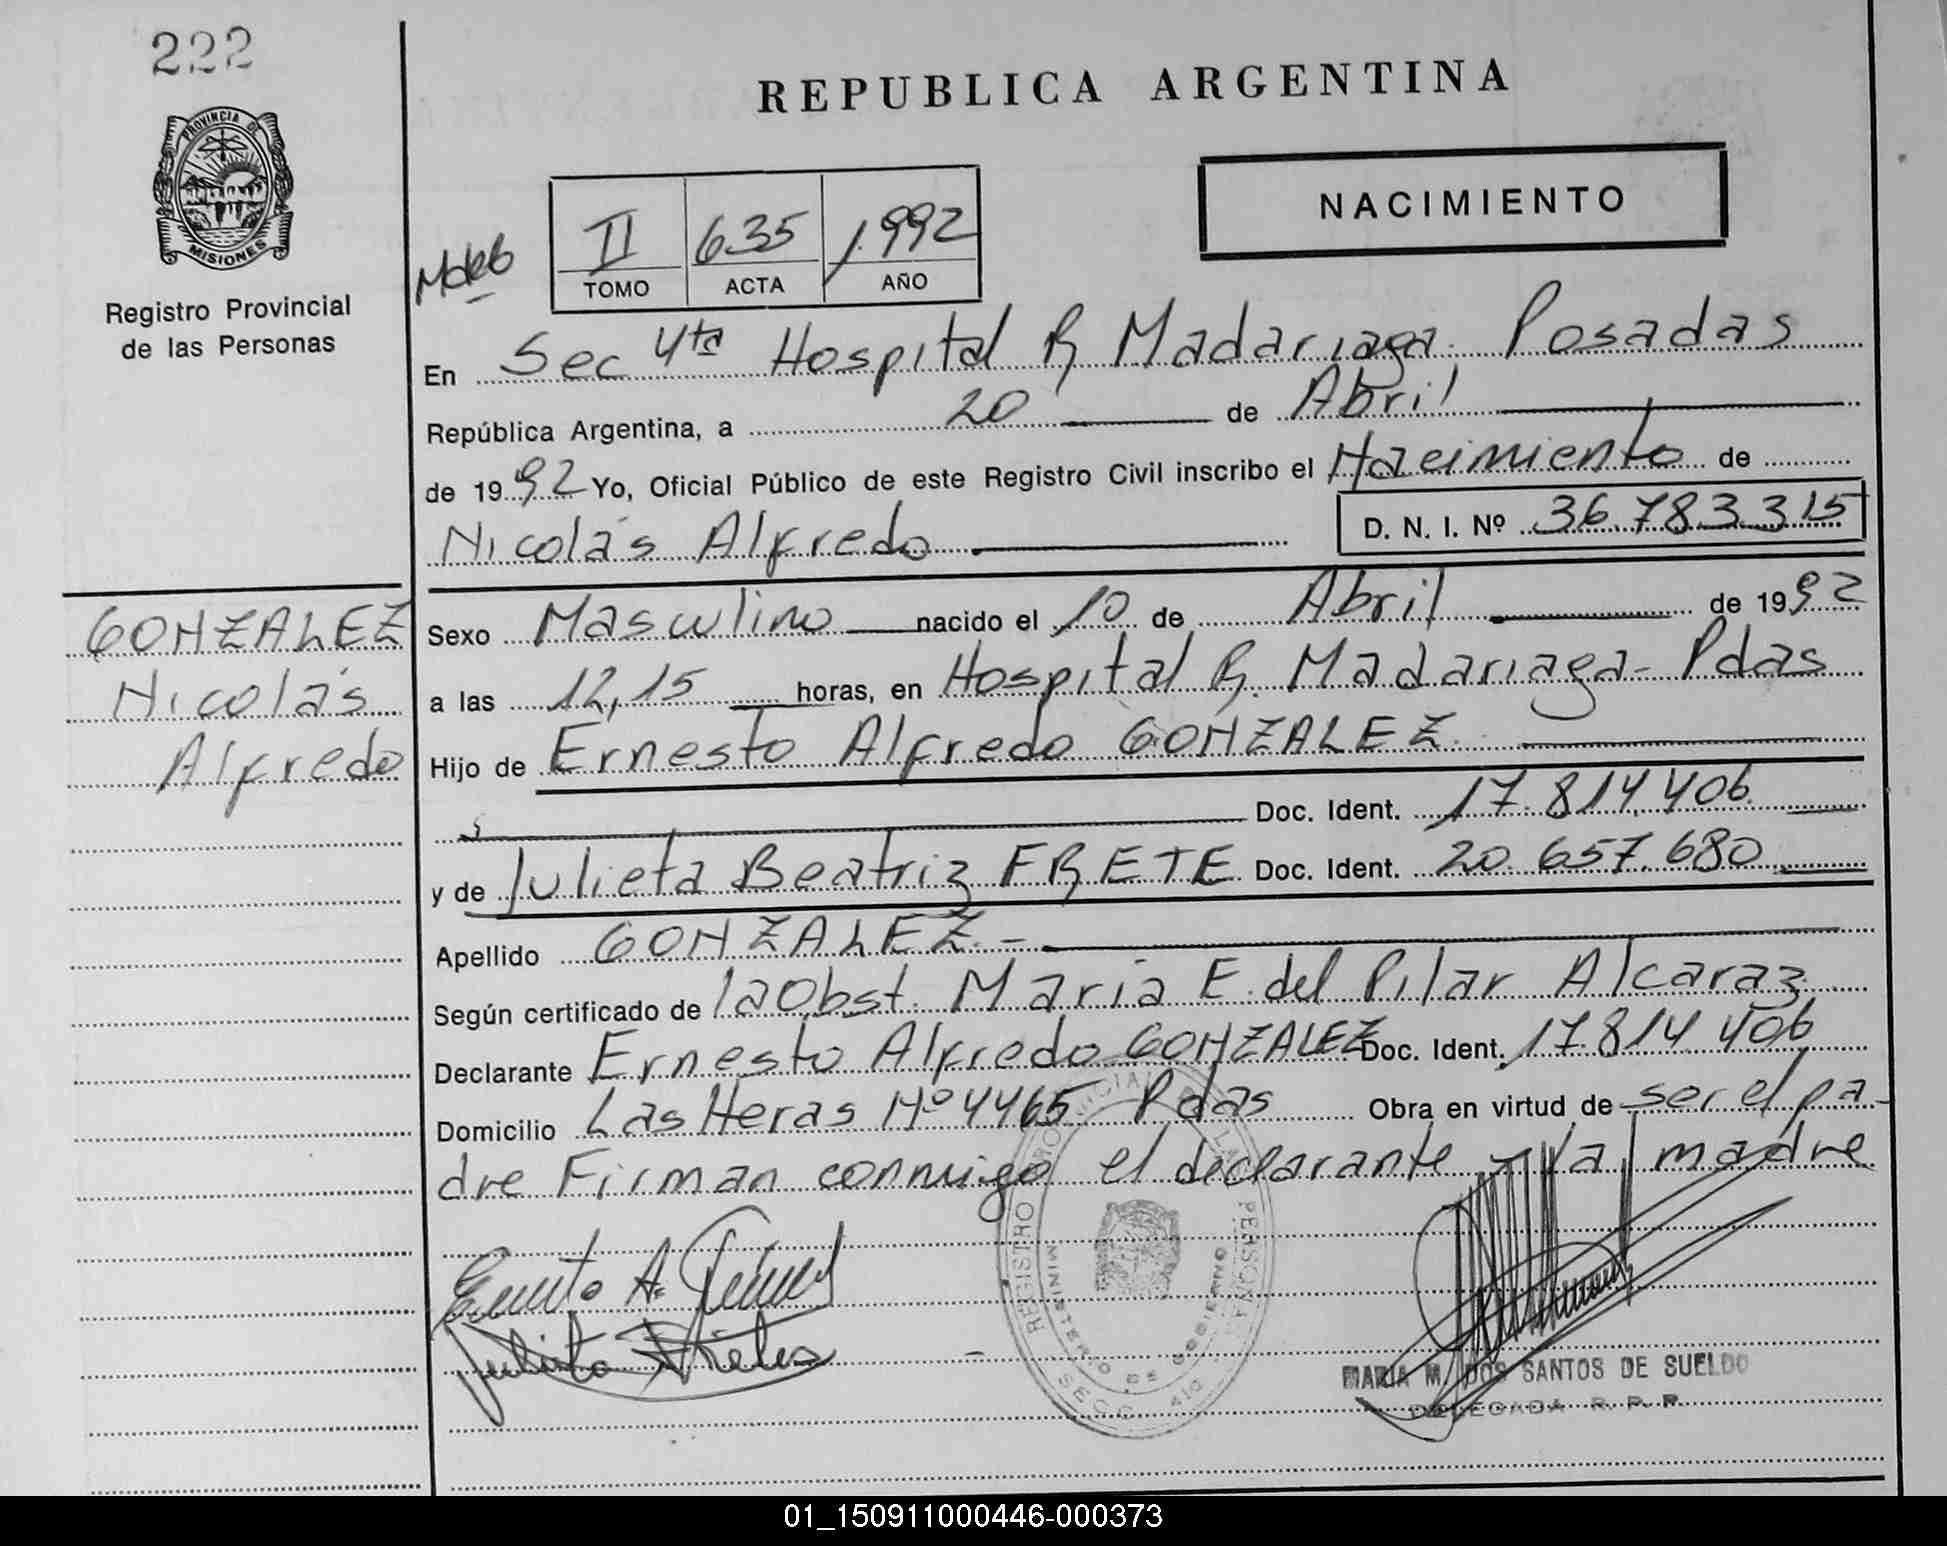 222
REPUBLICA ARGENTINA
PROVINCIA DE
MISIONES
Registro Provincial
de las Personas
NACIMIENTO
II 635 1.992
TOMO ACTA AÑO
En Sec 4ta Hospital R Madariaga. Posadas
República Argentina, a 20 de Abril
de 1992 Yo, Oficial Público de este Registro Civil inscribo el Nacimiento de
Nicolás Alfredo D. N. I. Nº 36.783.315
GONZALEZ
Nicolás
Alfredo
Sexo Masculino nacido el 10 de Abril de 1992
a las 12,15 horas, en Hospital R. Madariaga - Pdas
Hijo de Ernesto Alfredo GONZALEZ
Doc. Ident. 17.814.406
y de Julieta Beatriz FRETE Doc. Ident. 20.657.680
Apellido GONZALEZ.-
Según certificado de la Obst. Maria E. del Pilar Alcaraz
Declarante Ernesto Alfredo GONZALEZ Doc. Ident. 17.814.406
Domicilio Las Heras Nº 4465 Pdas Obra en virtud de ser el pa-
dre Firman conmigo el declarante y la madre
REGISTRO PROVINCIAL DE LAS PERSONAS
MINISTERIO DE GOBIERNO
SECC. 4ta
MARIA M. DOS SANTOS DE SUELDO
DELEGADA R. P. P.
01_150911000446-000373